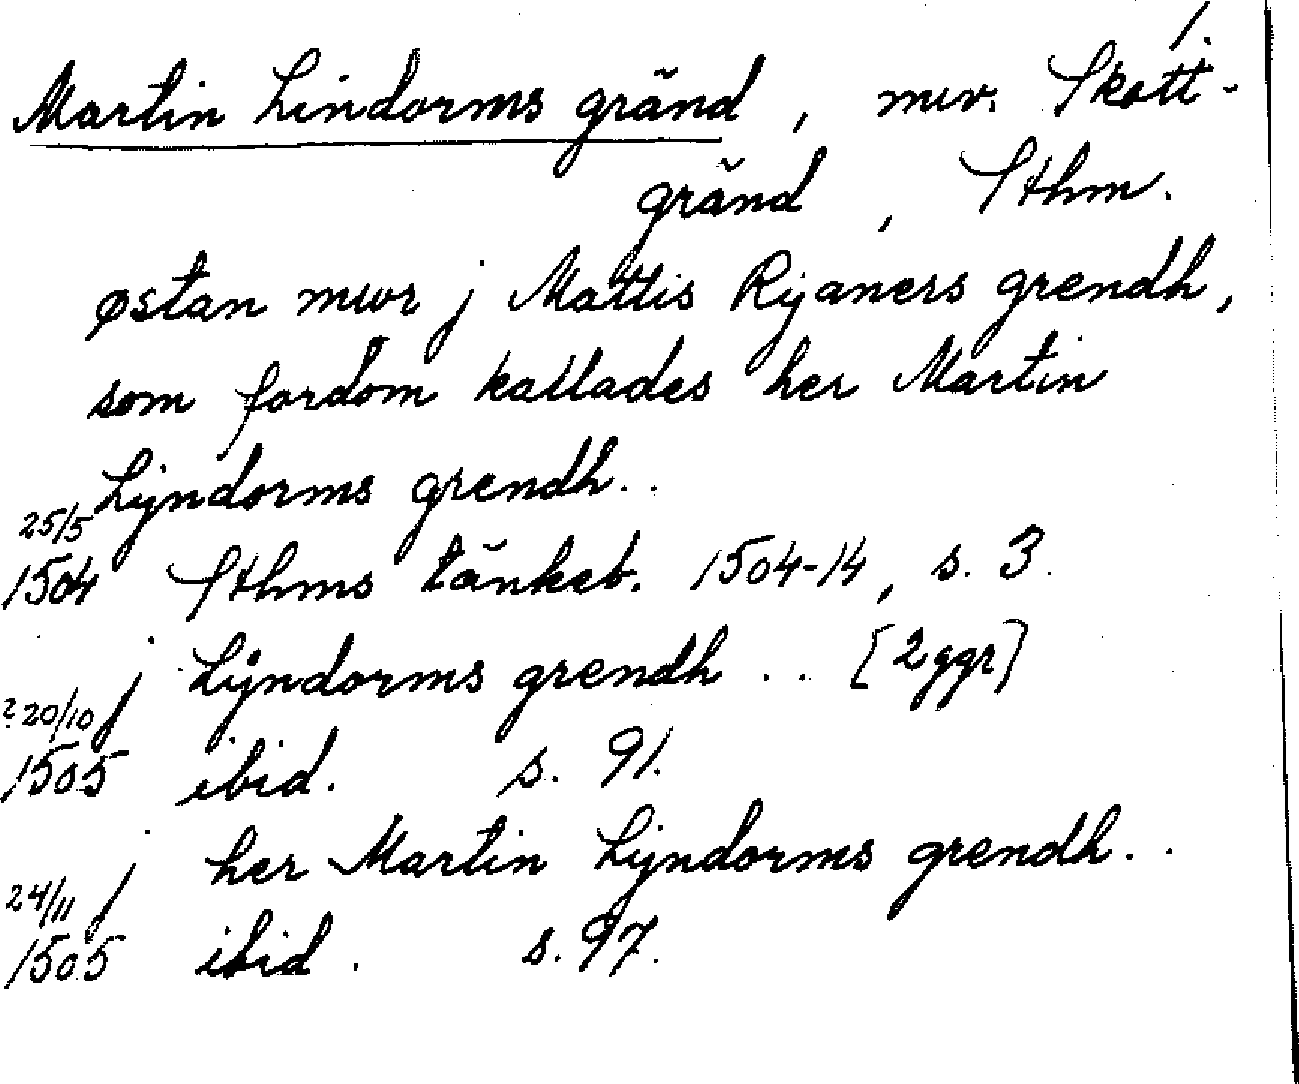 1.
Martin Lindorms gränd, nuv. Skott-
gränd, Sthm.
østan mwr j Mattis Rijaners grendh,
som fordom kallades her Martin
Lijndorms grendh..
25/5
1504 Sthms tänkeb. 1504-14, s. 3.
j Lijndorms grendh .. [2 ggr]
? 20/10
1505 ibid. s. 91.
j her Martin Lijndorms grendh..
24/11
1505 ibid. s. 97.